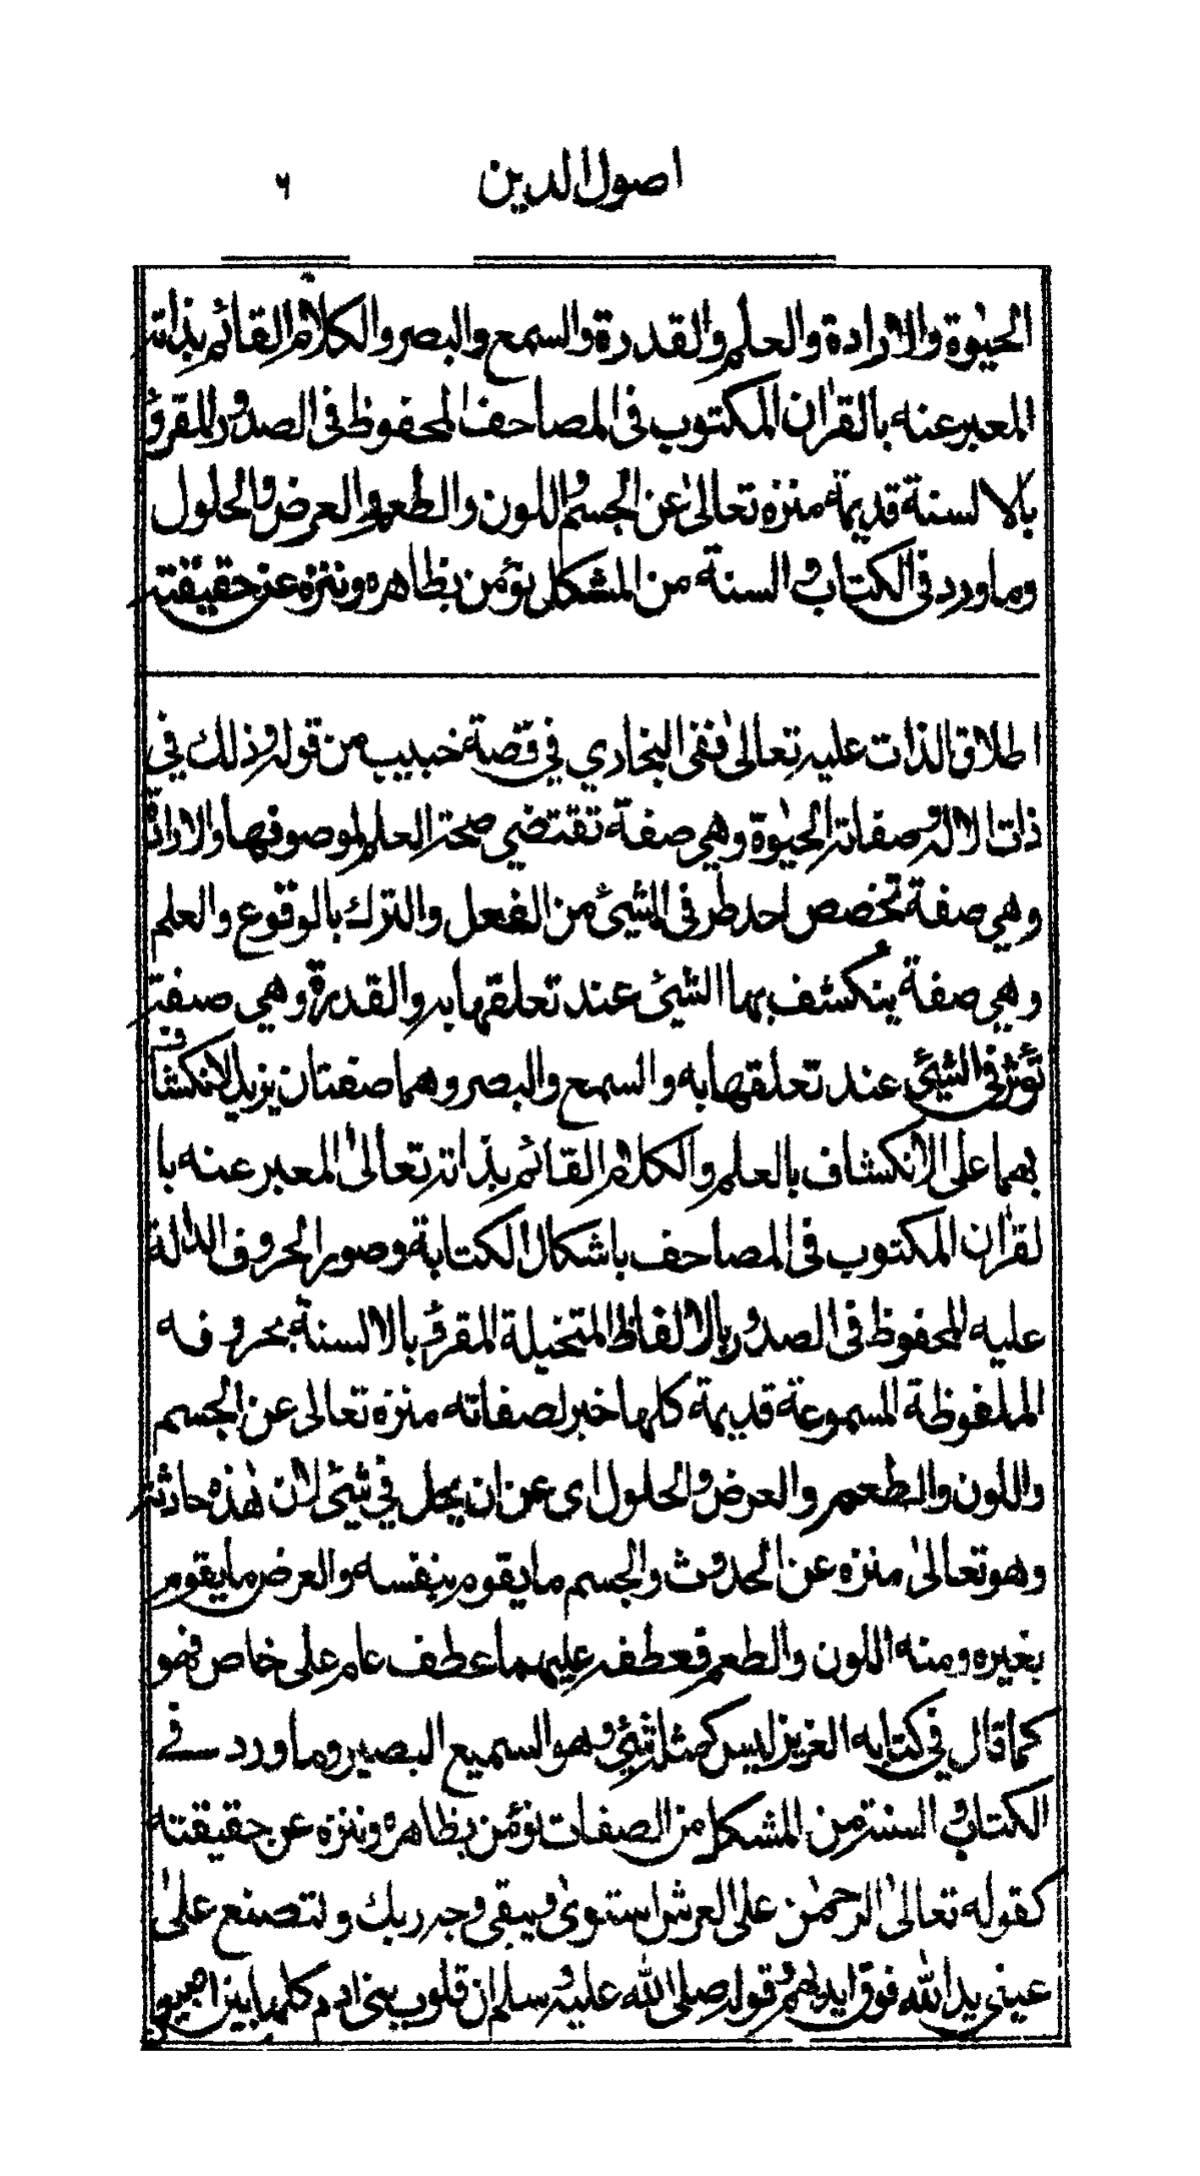 اصول الدين ٦
الحيٰوة والارادة والعلم والقدرة والسمع والبصر والكلام القائم بذاته
المعبر عنه بالقراٰن المكتوب فى المصاحف المحفوظ فى الصدور المقرؤ
بالالسنة قديمة منزه تعالىٰ عن الجسم واللون والطعم والعرض والحلول
وما ورد فى الكتاب والسنة من المشكل نؤمن بظاهره وننزه عن حقيقته
اطلاق الذات عليه تعالىٰ ففى البخاري في قصة خبيب من قوله وذلك في
ذات الاله وصفاته الحيٰوة وهي صفة تقتضي صحة العلم لموصوفها والارادة
وهي صفة تخصص احد طرفى الشيئ من الفعل والترك بالوقوع والعلم
وهي صفة ينكشف بها الشيئ عند تعلقها به والقدرة وهي صفة
تؤثر فى الشيئ عند تعلقها به والسمع والبصر وهما صفتان يزيد الانكشاف
بهما على الانكشاف بالعلم والكلام القائم بذاته تعالىٰ المعبر عنه با
لقراٰن المكتوب فى المصاحف باشكال الكتابة وصور الحروف الدالة
عليه المحفوظ فى الصدور بالالفاظ المتخيلة المقرؤ بالالسنة بحروفه
الملفوظة المسموعة قديمة كلها خبر لصفاته منزه تعالى عن الجسم
واللون والطعم والعرض والحلول اى عن ان يحل في شيئ لان هٰذه حادثة
وهو تعالىٰ منزه عن الحدوث والجسم ما يقوم بنفسه والعرض ما يقوم
بغيره ومنه اللون والطعم فعطفه عليهما عطف عام على خاص فهو
كما قال في كتابه العزيز ليس كمثله شيئ وهو السميع البصير وما ورد في
الكتاب والسنة من المشكل من الصفات نؤمن بظاهره وننزه عن حقيقته
كقوله تعالىٰ الرحمٰن على العرش استوىٰ ويبقى وجه ربك ولتصنع علىٰ
عيني يد الله فوق ايديهم وقوله صلى الله عليه وسلم ان قلوب بنى اٰدم كلها بين اصبعين